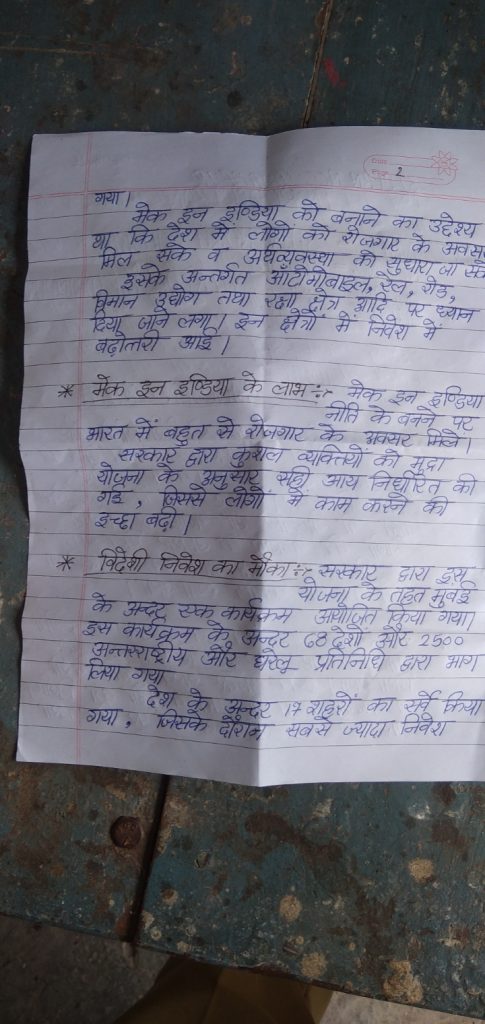 2
गया।
मेक इन इण्डिया को बनाने का उद्देश्य
था कि देश में लोगो को रोजगार के अवसर
मिल सके व अर्थव्यवस्था को सुधारा जा सके
इसके अन्तर्गत ऑटोमोबाइल, रेल, रोड,
विमान उद्योग तथा रक्षा क्षेत्र आदि पर ध्यान
दिया जाने लगा। इन क्षेत्रों में निवेश में
बढ़ोत्तरी आई।
* मेक इन इण्डिया के लाभ:- मेक इन इण्डिया
नीति के बनने पर
भारत में बहुत से रोजगार के अवसर मिले।
सरकार द्वारा कुशल व्यक्तियों को मुद्रा
योजना के अनुसार सही आय निर्धारित की
गई, जिससे लोगों में काम करने की
इच्छा बढ़ी।
* विदेशी निवेश का मौका:- सरकार द्वारा इस
योजना के तहत मुंबई
के अन्दर एक कार्यक्रम आयोजित किया गया।
इस कार्यक्रम के अन्दर 68 देशों और 2500
अन्तराष्ट्रीय और घरेलू प्रतिनिधि द्वारा भाग
लिया गया
देश के अन्दर 17 शहरों का सर्वे किया
गया, जिसके दौरान सबसे ज्यादा निवेश